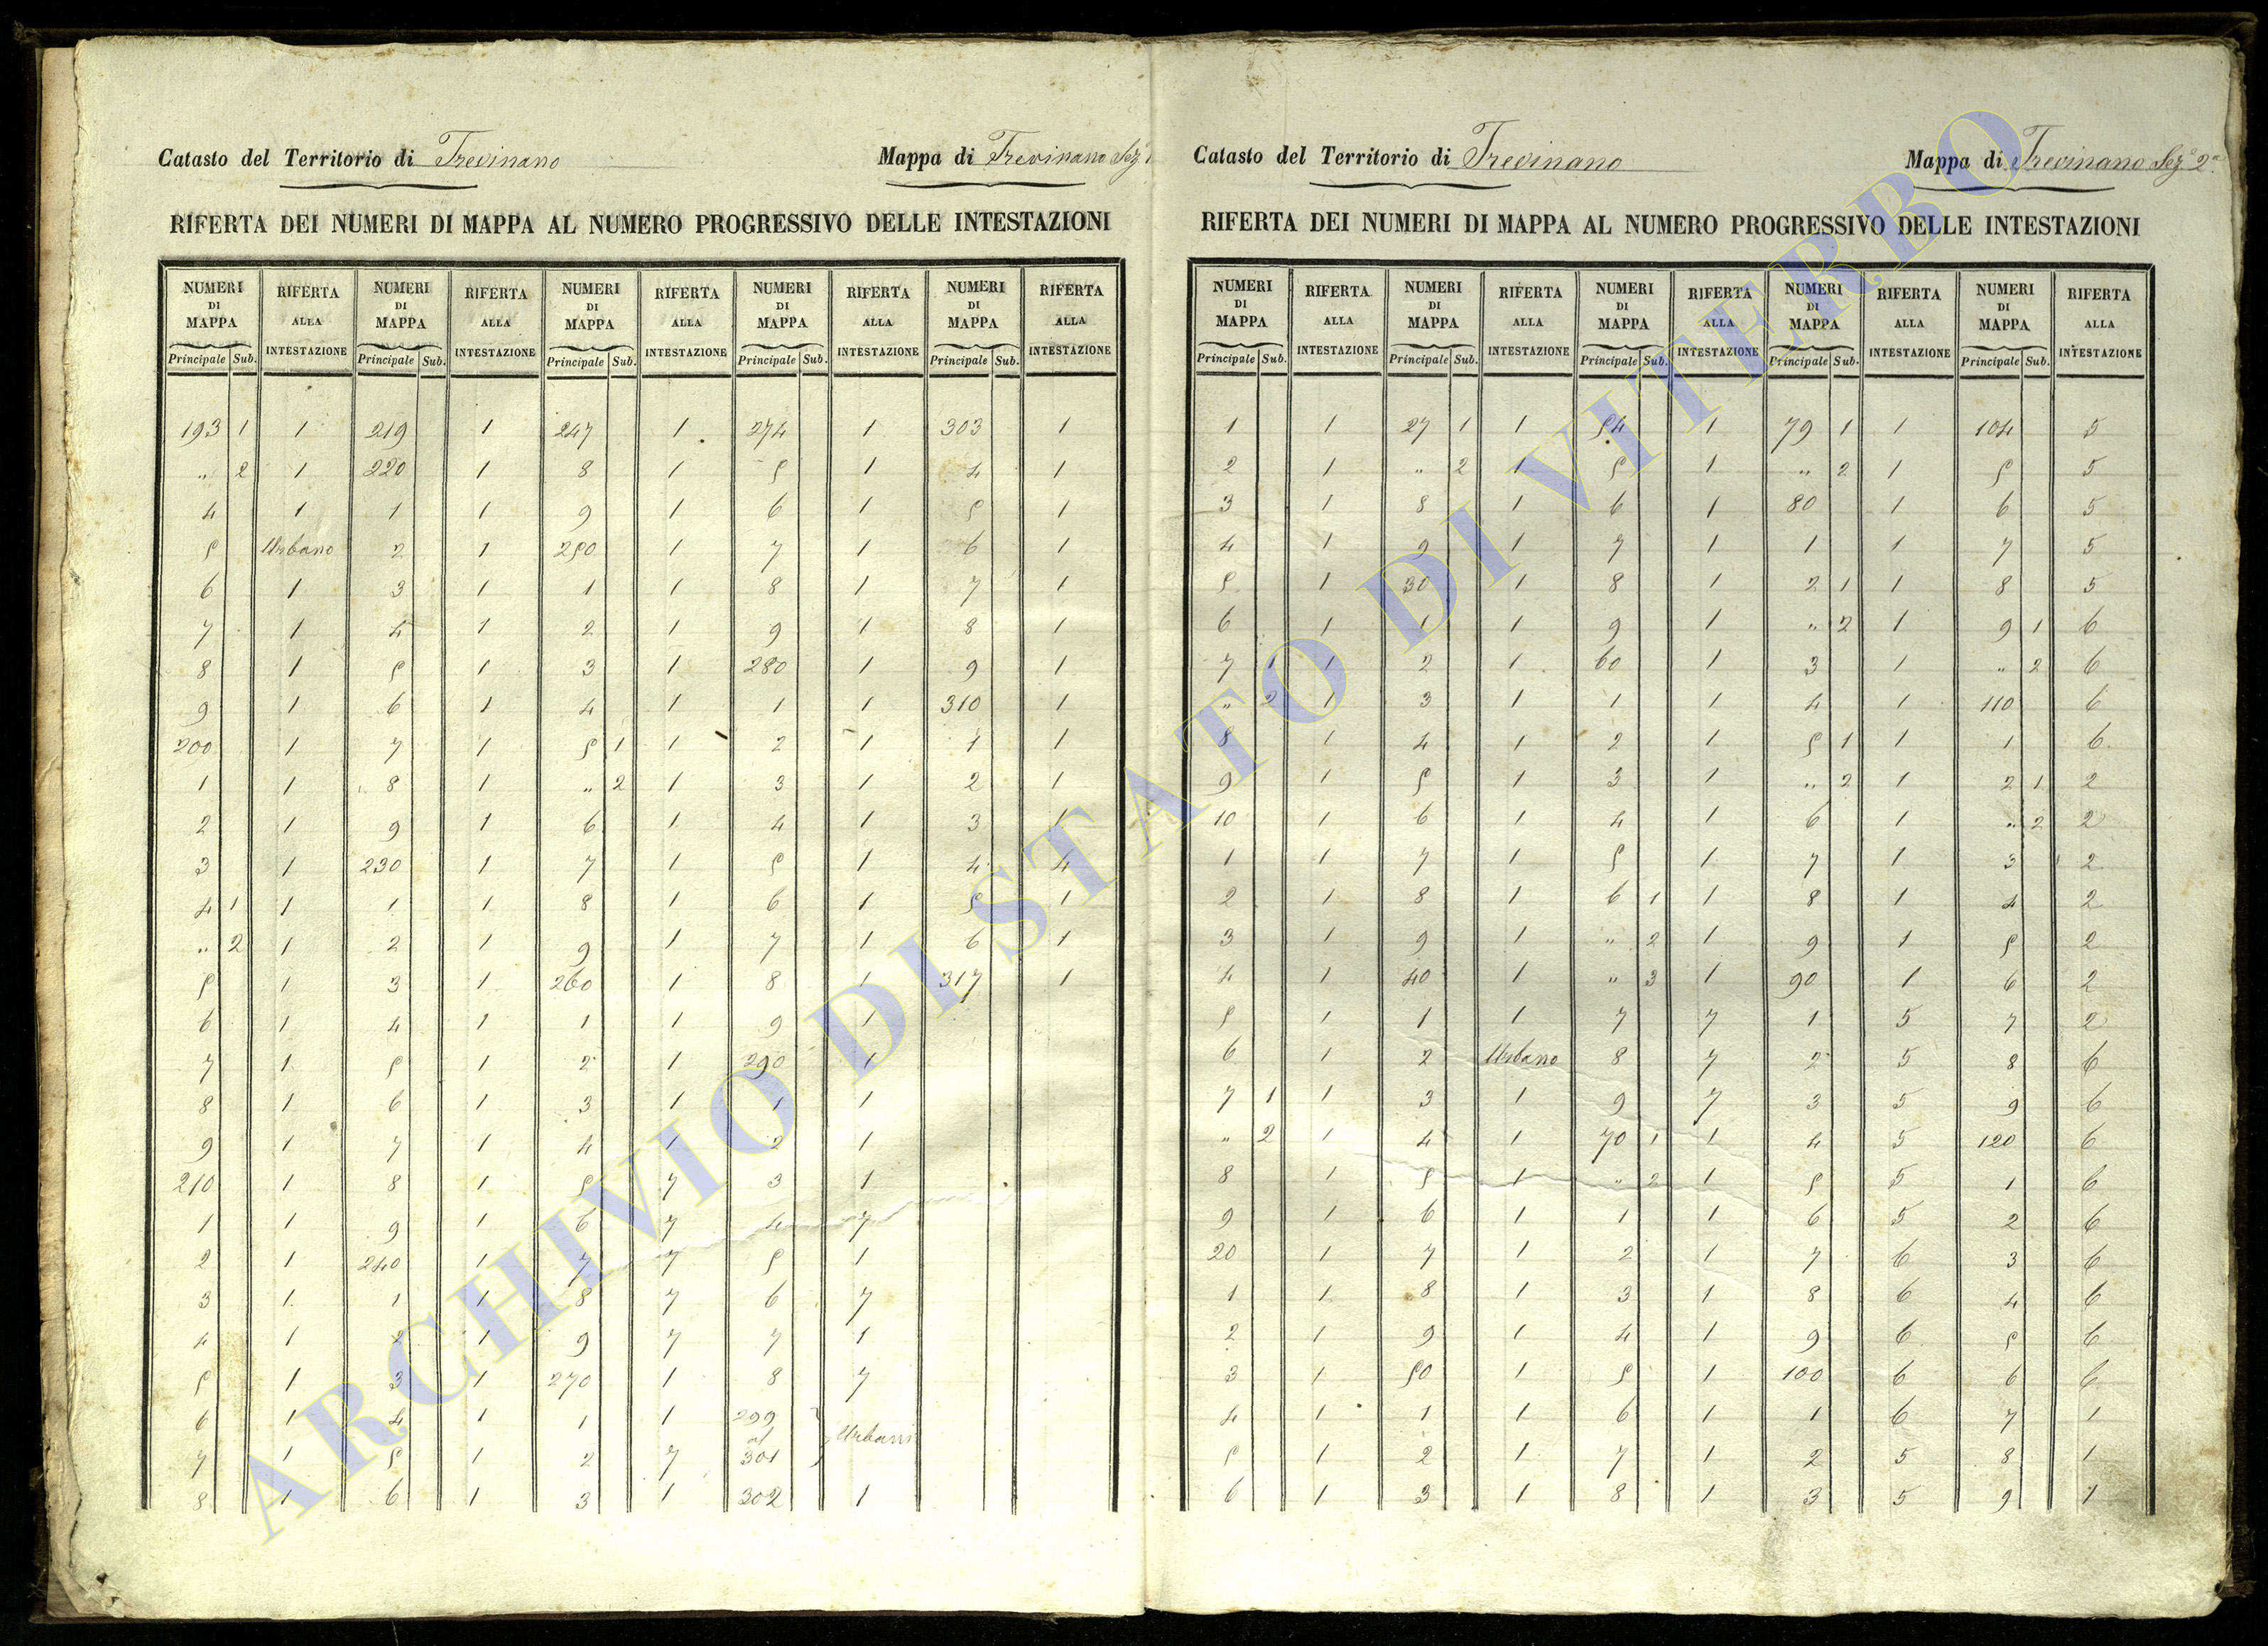 Catasto del Territorio di Trevinano Mappa di Trevinano Sez.
RIFERTA DEI NUMERI DI MAPPA AL NUMERO PROGRESSIVO DELLE INTESTAZIONI
NUMERI RIFERTA NUMERI RIFERTA NUMERI RIFERTA NUMERI RIFERTA NUMERI RIFERTA
DI ALLA DI ALLA DI ALLA DI ALLA DI ALLA
MAPPA INTESTAZIONE MAPPA INTESTAZIONE MAPPA INTESTAZIONE MAPPA INTESTAZIONE MAPPA INTESTAZIONE
Principale Sub. Principale Sub. Principale Sub. Principale Sub. Principale Sub.
193 1 1 219 1 247 1 274 1 303 1
" 2 1 220 1 8 1 5 1 4 1
4 1 1 1 9 1 6 1 5 1
5 Urbano 2 1 250 1 7 1 6 1
6 1 3 1 1 1 8 1 7 1
7 1 4 1 2 1 9 1 8 1
8 1 5 1 3 1 280 1 9 1
9 1 6 1 4 1 1 1 310 1
200 1 7 1 5 1 1 2 1 1 1
1 1 8 1 " 2 1 3 1 2 1
2 1 9 1 6 1 4 1 3 1
3 1 230 1 7 1 5 1 4 4
4 1 1 1 1 8 1 6 1 5 1
" 2 1 2 1 9 1 7 1 6 1
5 1 3 1 260 1 8 1 317 1
6 1 4 1 1 1 9 1
7 1 5 1 2 1 290 1
8 1 6 1 3 1 1 1
9 1 7 1 4 1 2 1
210 1 8 1 5 7 3 1
1 1 9 1 6 7 4 7
2 1 240 1 7 7 5 1
3 1 1 1 8 7 6 7
4 1 2 1 9 7 7 1
5 1 3 1 270 1 8 7
6 1 4 1 1 1 299
al Urbani
7 1 5 1 2 7 301
8 1 6 1 3 1 302 1
Catasto del Territorio di Trevinano Mappa di Trevinano Sez.e 2a
RIFERTA DEI NUMERI DI MAPPA AL NUMERO PROGRESSIVO DELLE INTESTAZIONI
NUMERI RIFERTA NUMERI RIFERTA NUMERI RIFERTA NUMERI RIFERTA NUMERI RIFERTA
DI ALLA DI ALLA DI ALLA DI ALLA DI ALLA
MAPPA INTESTAZIONE MAPPA INTESTAZIONE MAPPA INTESTAZIONE MAPPA INTESTAZIONE MAPPA INTESTAZIONE
Principale Sub. Principale Sub. Principale Sub. Principale Sub. Principale Sub.
1 1 27 1 1 54 1 79 1 1 104 5
2 1 " 2 1 5 1 " 2 1 5 5
3 1 8 1 6 1 80 1 6 5
4 1 9 1 7 1 1 1 7 5
5 1 30 1 8 1 2 1 1 8 5
6 1 1 1 9 1 " 2 1 9 1 6
7 1 1 2 1 60 1 3 1 " 2 6
" 2 1 3 1 1 1 4 1 110 6
8 1 4 1 2 1 5 1 1 1 6
9 1 5 1 3 1 " 2 1 2 1 2
10 1 6 1 4 1 6 1 " 2 2
1 1 7 1 5 1 7 1 3 2
2 1 8 1 6 1 1 8 1 4 2
3 1 9 1 " 2 1 9 1 5 2
4 1 40 1 " 3 1 90 1 6 2
5 1 1 1 7 7 1 5 7 2
6 1 2 Urbano 8 7 2 5 8 6
7 1 1 3 1 9 7 3 5 9 6
" 2 1 4 1 70 1 1 4 5 120 6
8 1 5 1 " 2 1 5 5 1 6
9 1 6 1 1 1 6 5 2 6
20 1 7 1 2 1 7 6 3 6
1 1 8 1 3 1 8 6 4 6
2 1 9 1 4 1 9 6 5 6
3 1 50 1 5 1 100 6 6 6
4 1 1 1 6 1 1 6 7 1
5 1 2 1 7 1 2 5 8 1
6 1 3 1 8 1 3 5 9 1
ARCHIVIO DI STATO DI VITERBO